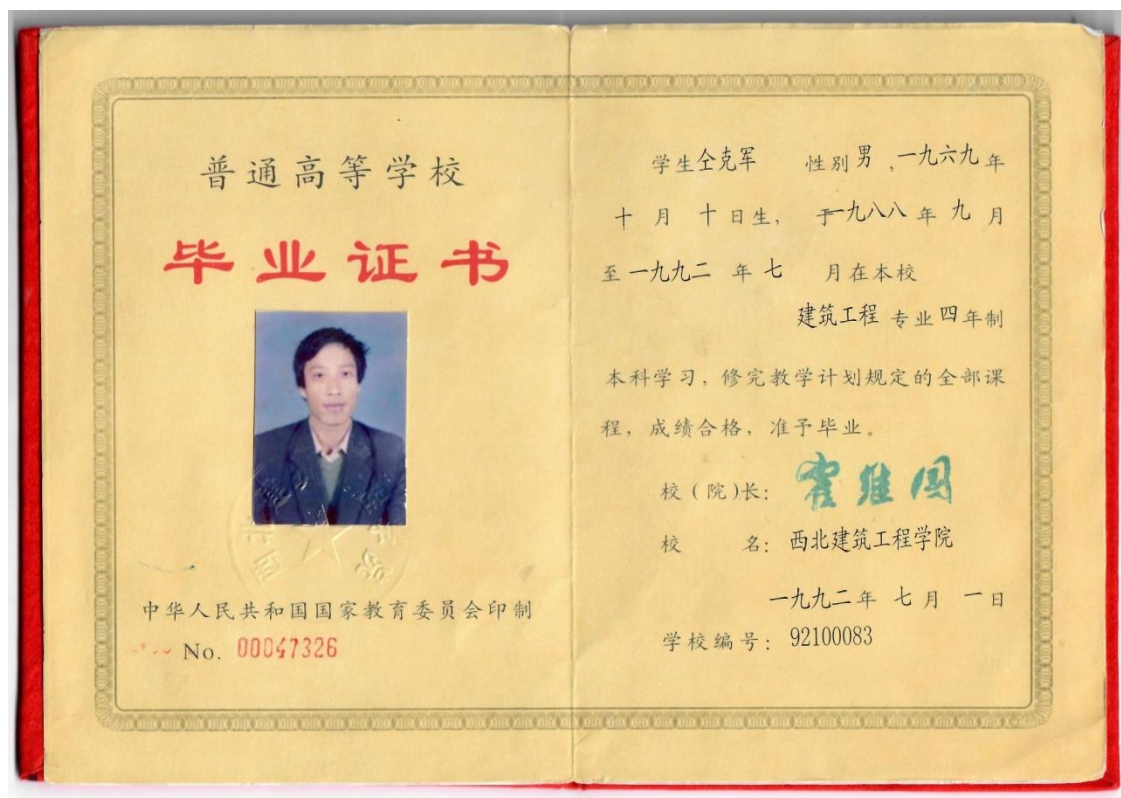 普通高等学校
毕业证书
中华人民共和国国家教育委员会印制
No. 00047326
学生仝克军 性别男，一九六九年
十月十日生，于一九八八年九月
至一九九二年七月在本校
建筑工程专业四年制
本科学习，修完教学计划规定的全部课
程，成绩合格，准予毕业。
校(院)长：霍维国
校 名：西北建筑工程学院
一九九二年七月一日
学校编号：92100083